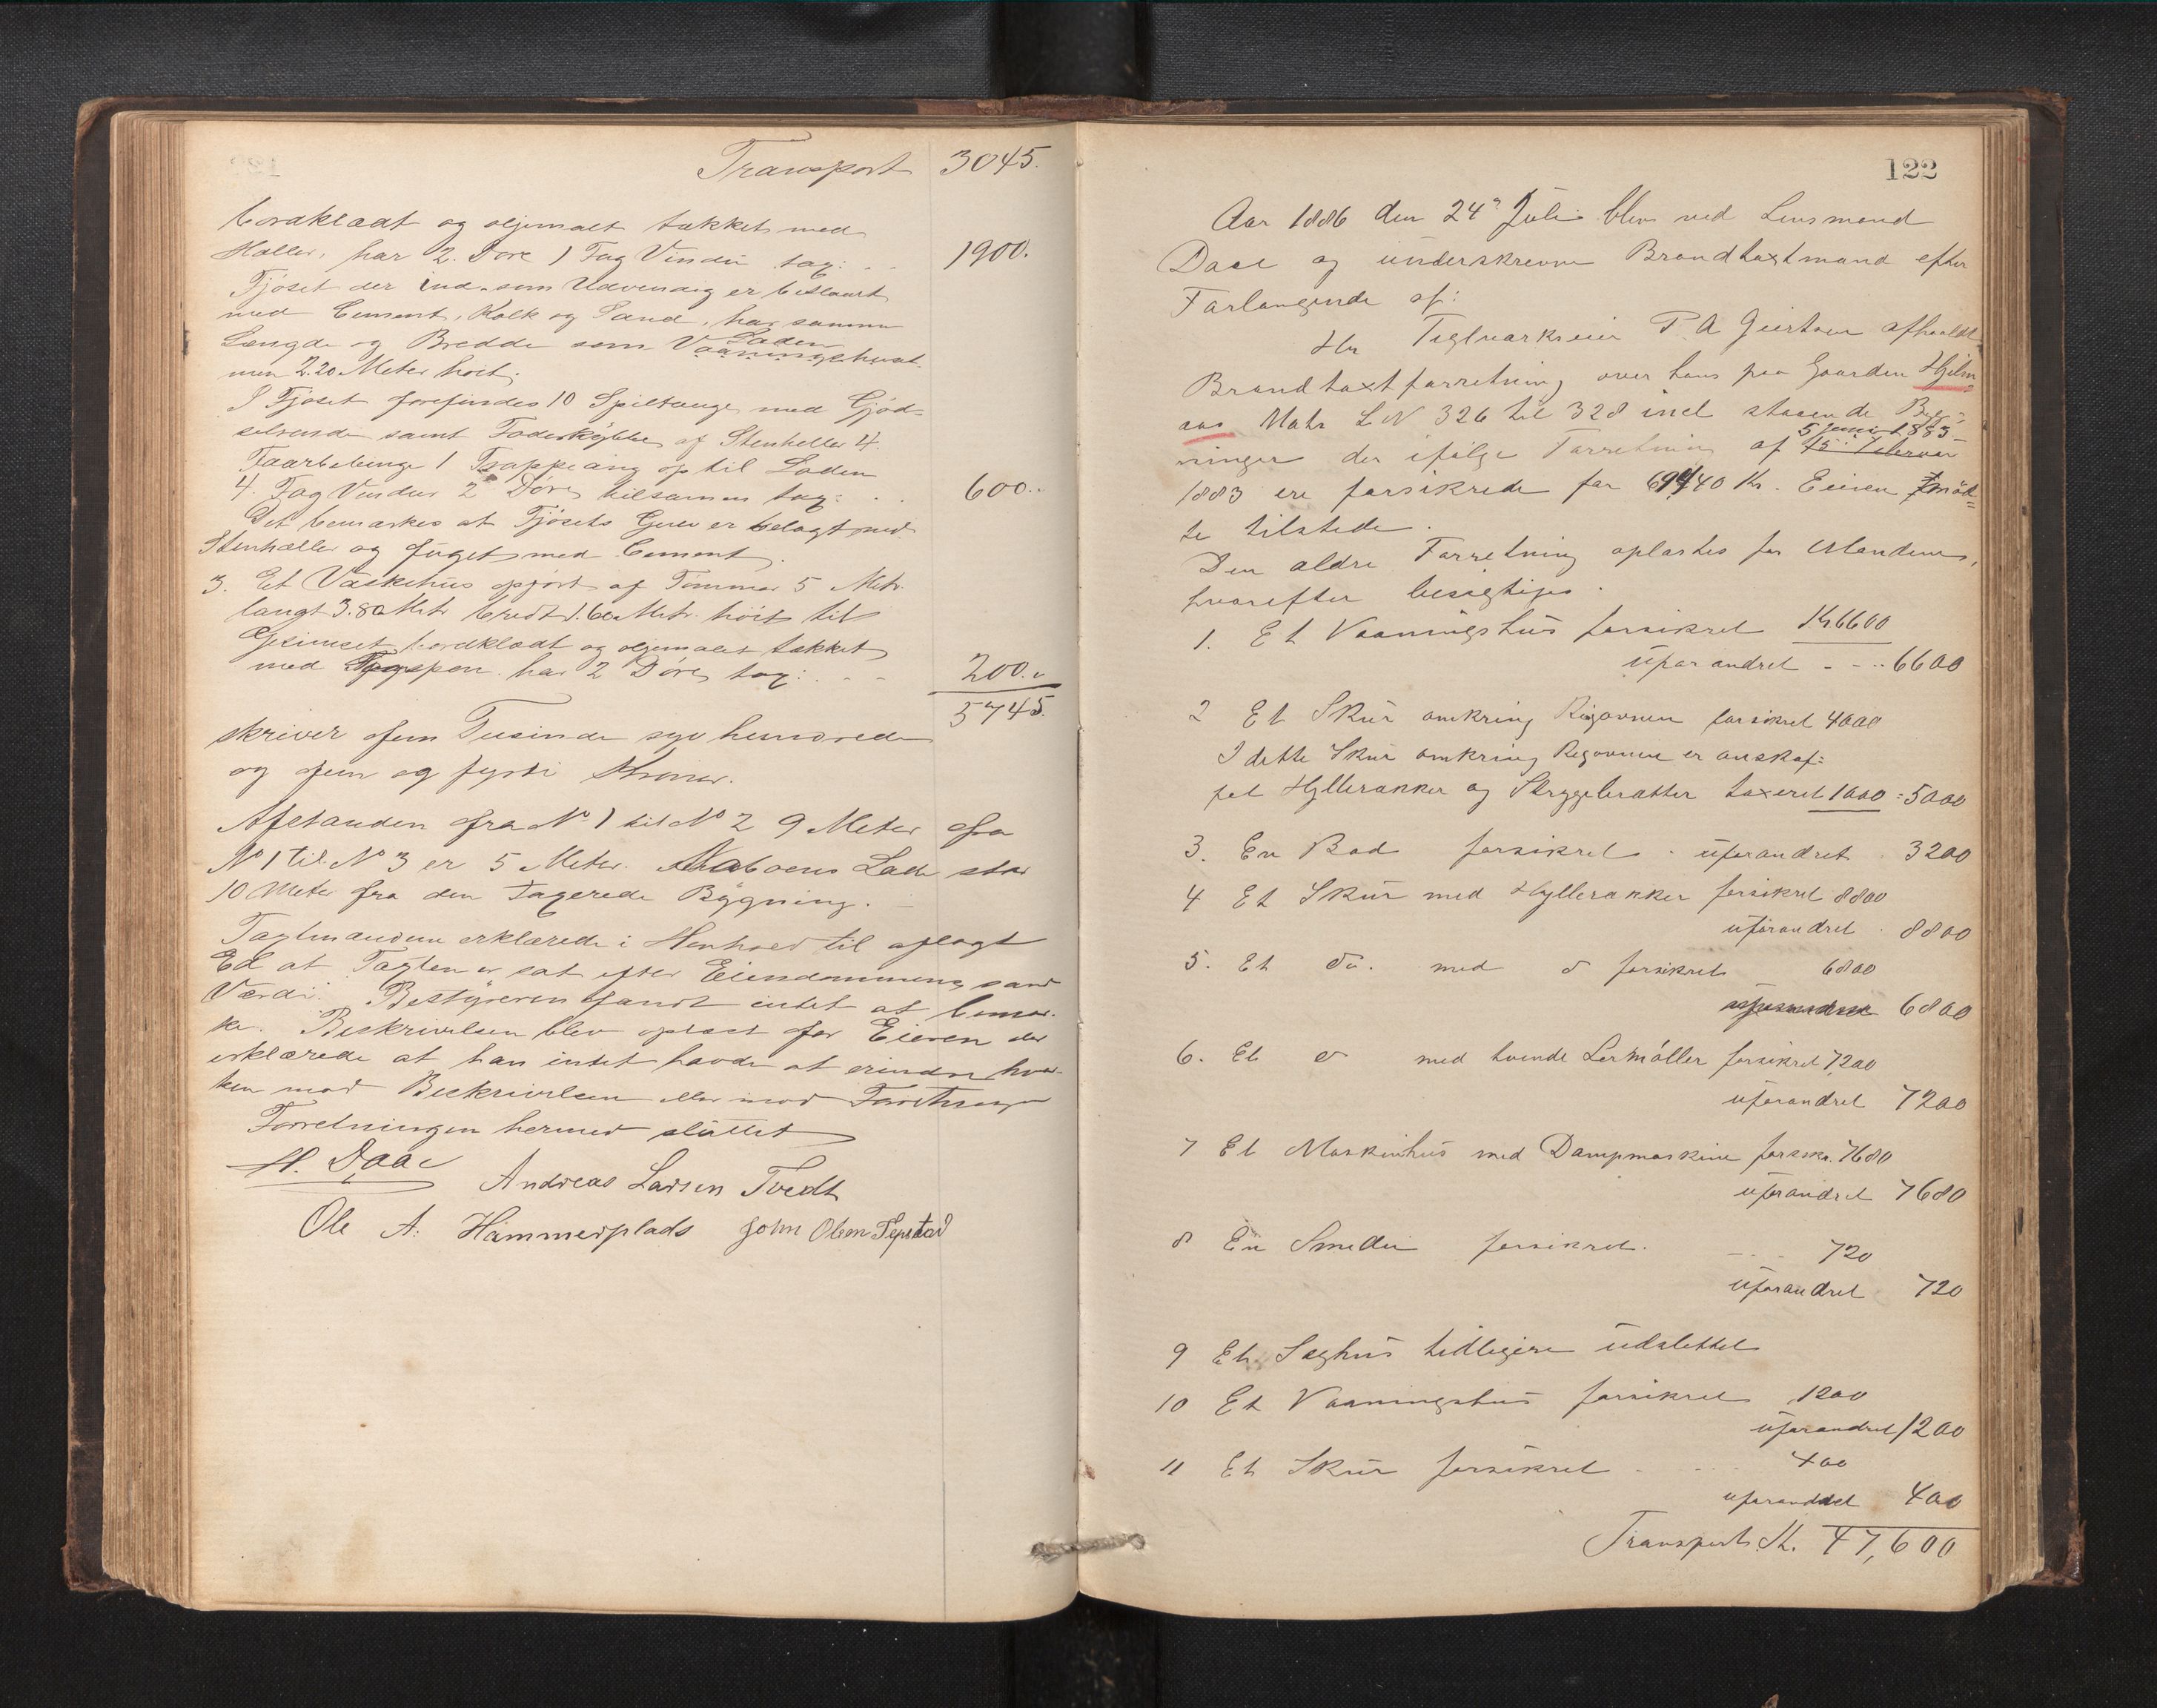 Transport 3045.
bordklædt og oljemalt tækket med
Heller, har 2. Døre 1 Fag Vindu tax: . . 1900.
Fjøset der ind- som Udvendig er beslaaet
med Cement, Kalk og Sand, har samme
Længde og Bredde som Laden Vaaningshuset
men 2.20 Meter höit.
I Fjöset forefindes 10 Spiltauge med Gjöd-
selrende samt Foderkrybbe af Stenheller 4.
Faarebinge 1 Trappegang op til Laden
4. Fag Vinduer 2 Döre tilsammen tax: . . 600..
Det bemærkes at Fjösets Gulv er belagt med
Stenheller og fuget med Cement.
3. Et Vaskehus opfört af Tömmer 5 Metr.
langt 3.80 Metr bredt 1.60 Metr. höit til
Gesimset bordklædt og oljemalet tækket
med Tagspon. har 2 Döre tax: . - - 200..
5745.
skriver fem Tusinde syv hundrede
og fem og fyrti Kroner.
Afstanden fra No 1 til No 2 9 Meter fra
No 1 til No 3 er 5 Meter. Naboens Lade står
10 Meter fra den taxerede Bÿgning. -
Taxtmændene erklærede i Henhold til aflagt
Ed at Taxten er sat efter Eiendommens sand
Værdi. Bestyreren fandt intet at bemær-
ke. Beskrivelsen blev oplæst for Eieren der
erklærede at han intet havde at erindre hver-
ken mod Beskrivelsen eller mod Forretningen
Forretningen hermed slüttet
H. Daae Andreas Larsen Tvedt
Ole A. Hammerplads John Olsen
122
Aar 1886 den 24de Juli blev ved Lensmand
Daae og underskrevne Brandtaxtmænd efter
Forlangende af:
Hr Teglværkseier P. A. afholdt
Brandtaxtforretning over hans paa Gaarden Hjelm-
aas Matr L N 326 til 328 incl staaende Byg-
ninger der ifölge Forretning af 5 Juni 1885 15 Februar
1883 ere forsikrede for 69440 Kr. Eieren möd-
te tilstede.
Den ældre Forretning oplæstes for Mændene,
hvorefter besigtiges.
1. Et Vaaningshus forsikret Kr 6600
uforandret - - .. 6600
2 Et Skur omkring Rigovnen forsikret 4000
I dette Skur omkring Rigovnen er anskaf-
fet Hyllerækker og Strygebrætter taxeret 1000 = 5000
3. En Bod forsikret . uforandret . 3200
4 Et Skur med Hyllerækker forsikret 8800
uforandret . 8800
5. Et do. med do forsikret 6800
uforandret 6800
6. Et do med tvende Lermöller forsikret 7200
uforandret 7200
7 Et Maskinhus med Dampmaskine forsikr. 7680
uforandret 7680
8 En Smedie forsikret. - - - 720
uforandret 720
9 Et Saghus tidligere udslettet
10 Et Vaaningshus forsikret 1200
uforandret 1200
11 Et Skur forsikret - - . . . 400
uforandret 400
Transport Kr. 47,600